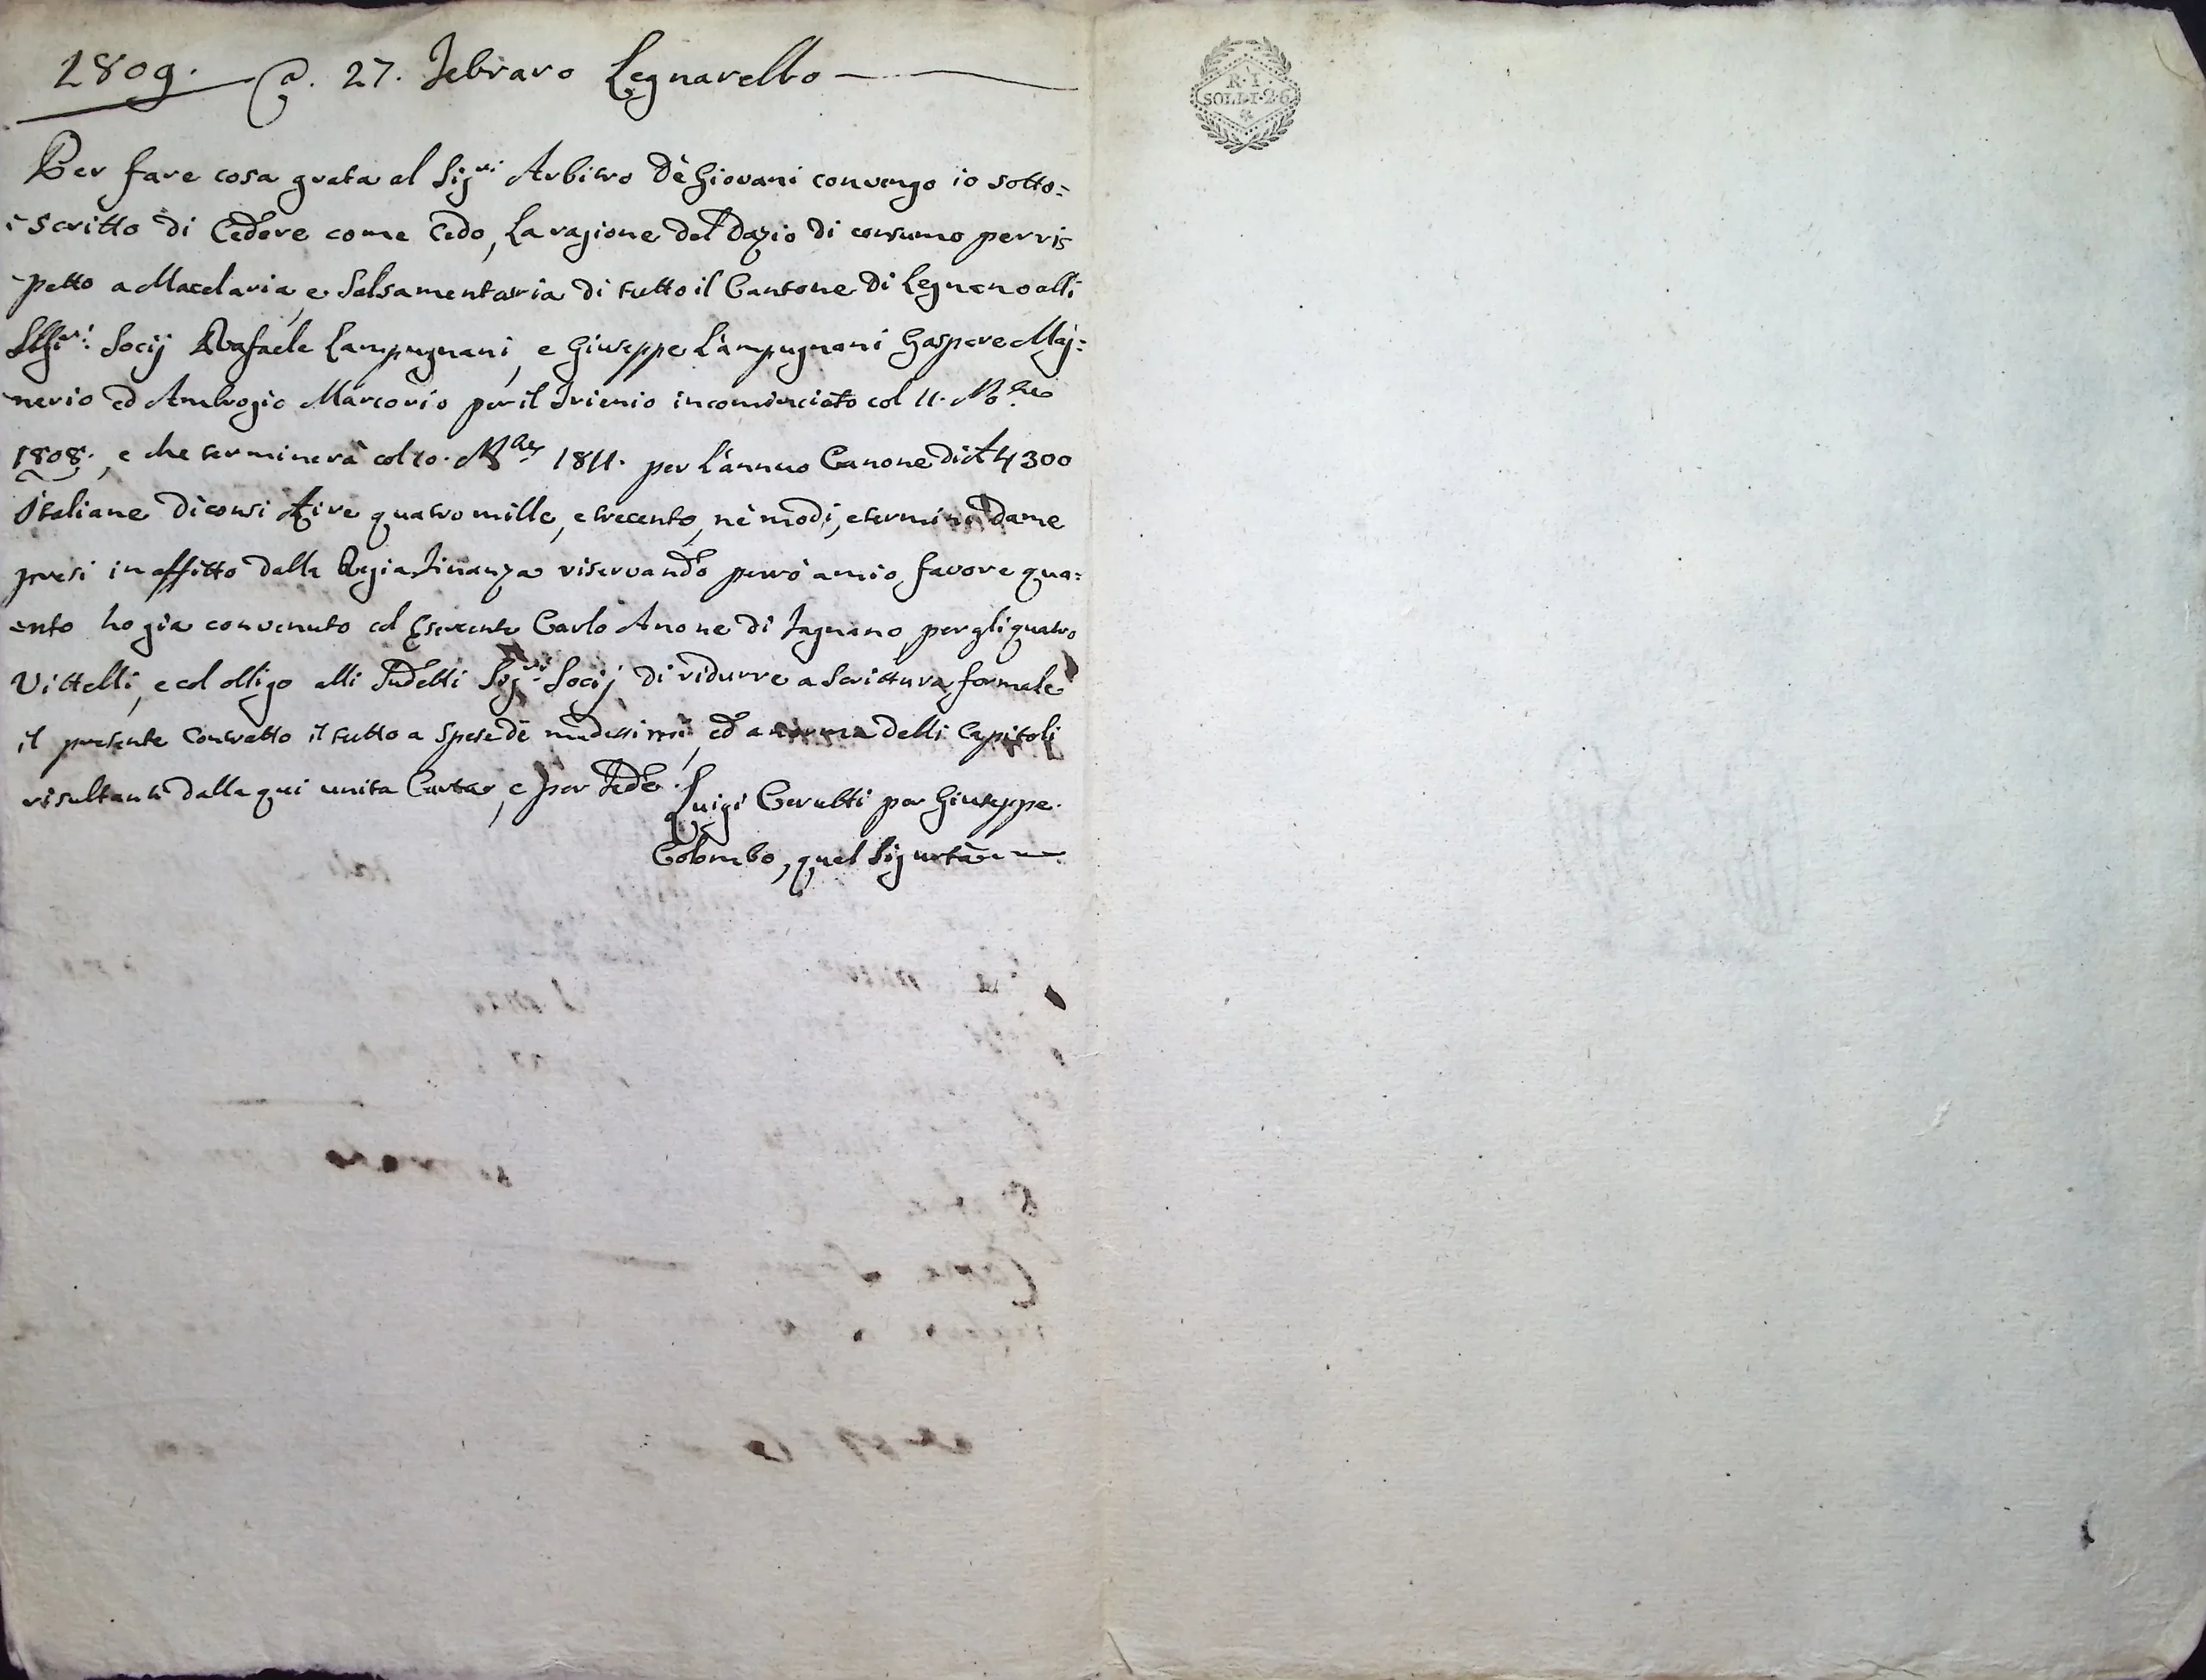 1809. a. 27. Febraro Legnarello
Per fare cosa grata al Sig.ri Arbitro de Giovani convengo io sotto=
=scritto di Cedere come Cedo, La ragione del Dazio di consumo perris
petto a Macelaria, e Salsamentaria di tutto il Cantone di Legnano alli
Sig.ri Socij Rafaele Lampugnani, e Giuseppe Lampugnani Gaspare Maj=
nerio ed Ambrogio Marcorio per il Trienio incominciato col 11. Nbre
1808., e che terminerà col 10. Nbre 1811. per L'annuo Canone di £ 4300
Italiane diconsi Lire quatro mille, e trecento, nè modi, e termini dame
presi in affitto dalla Regia Finanza riservando perrò a mio favore qua=
ento ho gia convenuto col Esercente Carlo Anone di Fagnano per gli quatro
Vittelli, e col obligo alli Sudetti Sig.ri Socij di ridurre a Scrittura formale
il presente Contratto il tutto a spese dè medessimi, ed a norma delli Capitoli
risultanti dalla qui unita Carta, e per Fede
Luigi Cerutti per Giuseppe
Colombo, qual Sigurtà
R. I.
SOLDI. 2. 6